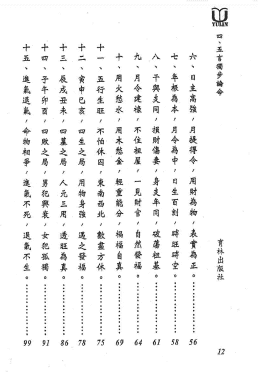 YULIN
四、五言獨步論命
六、日主高強，月提得令，用財為物，表實為正。 56
七、年根為本，月令為中，日生百刻，時旺時空。 58
八、干與支同，損財傷妻，身支年同，破蕩祖基。 61
九、月令建祿，不住祖屋，一見財官，自然發福。 64
十、用火愁水，用木愁金，輕重能分，禍福自真。 69
十一、五行生旺，不怕休囚，東南西北，數盡方休。 75
十二、寅申巳亥，四生之局，用物身強，遇之發福。 78
十三、辰戌丑未，四墓之局，人元三用，透旺為真。 86
十四、子午卯酉，四敗之局，男犯興衰，女犯孤獨。 91
十五、進氣退氣，命物相爭，進氣不死，退氣不生。 99
育林出版社
12